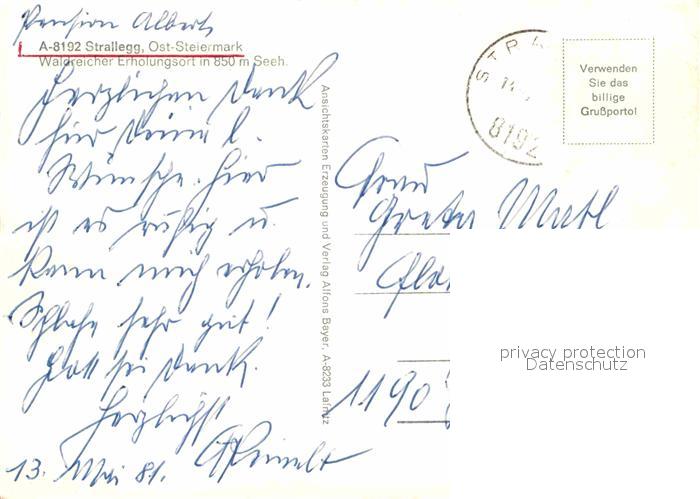 Pension Albert
A-8192 Strallegg, Ost-Steiermark
Waldreicher Erholungsort in 850 m Seeh.
Herzlichen Dank
für Deine l.
Wünsche. Hier
ist es ruhig u.
kann mich erholen.
Schlafe sehr gut!
Gott sei Dank.
Herzlichst
13. Mai 81.
Ansichtskarten Erzeugung und Verlag Alfons Bayer, A-8233 Lafnitz
STRA
8192
Verwenden
Sie das
billige
Grußporto!
Frau
Greta
1190
privacy protection
Datenschutz